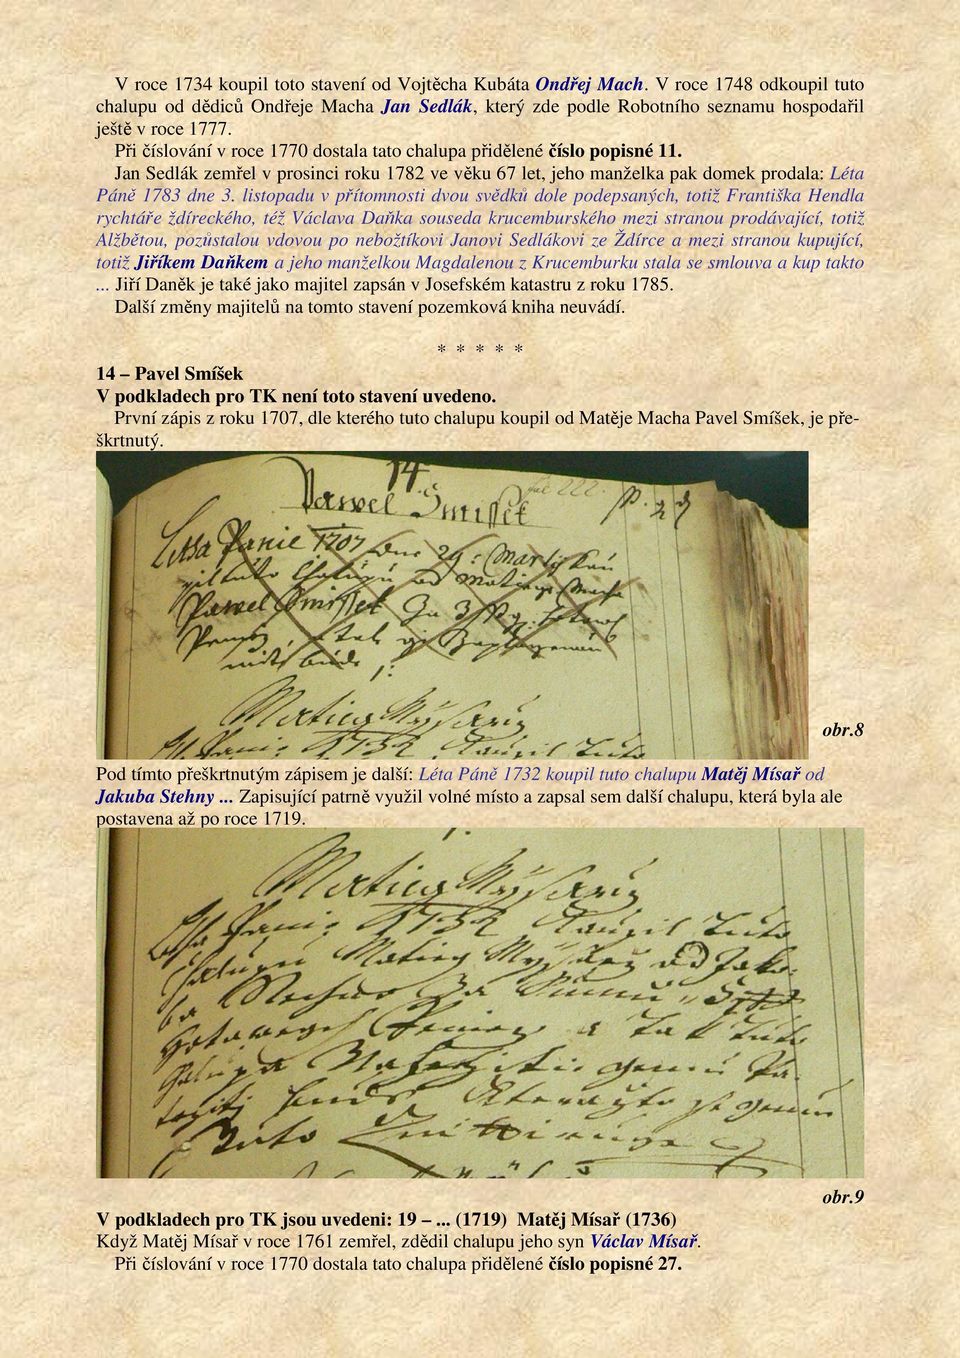 V roce 1734 koupil toto stavení od Vojtěcha Kubáta Ondřej Mach. V roce 1748 odkoupil tuto
chalupu od dědiců Ondřeje Macha Jan Sedlák, který zde podle Robotního seznamu hospodařil
ještě v roce 1777.
Při číslování v roce 1770 dostala tato chalupa přidělené číslo popisné 11.
Jan Sedlák zemřel v prosinci roku 1782 ve věku 67 let, jeho manželka pak domek prodala: Léta
Páně 1783 dne 3. listopadu v přítomnosti dvou svědků dole podepsaných, totiž Františka Hendla
rychtáře ždíreckého, též Václava Daňka souseda krucemburského mezi stranou prodávající, totiž
Alžbětou, pozůstalou vdovou po nebožtíkovi Janovi Sedlákovi ze Ždírce a mezi stranou kupující,
totiž Jiříkem Daňkem a jeho manželkou Magdalenou z Krucemburku stala se smlouva a kup takto
... Jiří Daněk je také jako majitel zapsán v Josefském katastru z roku 1785.
Další změny majitelů na tomto stavení pozemková kniha neuvádí.
* * * * *
14 – Pavel Smíšek
V podkladech pro TK není toto stavení uvedeno.
První zápis z roku 1707, dle kterého tuto chalupu koupil od Matěje Macha Pavel Smíšek, je pře-
škrtnutý.
14
Pawel Smissek
Letha Panie 1707 dne 29 Marty Kau
pil tuto Chalupu od Matiege Macha
Pawel Smissek Za 3
a tak gi
bude
Matieg Mysarz
Panie 1732 Kaupil tuto
obr.8
Pod tímto přeškrtnutým zápisem je další: Léta Páně 1732 koupil tuto chalupu Matěj Mísař od
Jakuba Stehny ... Zapisující patrně využil volné místo a zapsal sem další chalupu, která byla ale
postavena až po roce 1719.
Matieg Mysarz
Panie 1732 Kaupil tuto
Chalupu Matieg Mysarz od Jaku-
ba Stehno Za Summu
a tak tuto
gemu
bude
tuto
obr.9
V podkladech pro TK jsou uvedeni: 19 – ... (1719) Matěj Mísař (1736)
Když Matěj Mísař v roce 1761 zemřel, zdědil chalupu jeho syn Václav Mísař.
Při číslování v roce 1770 dostala tato chalupa přidělené číslo popisné 27.